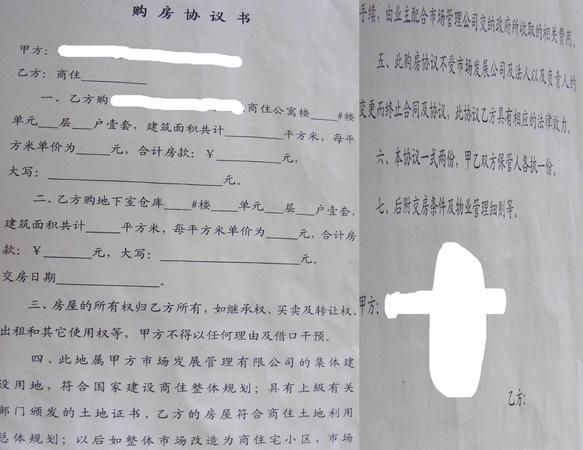 购房协议书
甲方：
乙方：商住__________
一、乙方购 商住公寓楼____#楼
单元___层___户壹套，建筑面积共计________平方米，每平
方米单价为____元，合计房款：￥__________元，
大写：____________________元。
二、乙方购地下室仓库____#楼___单元___层___户壹套，
建筑面积共计_____平方米，每平方米单价为_____元，合计房
款：￥______元，大写：____________元。
交房日期______________。
三、房屋的所有权归乙方所有，如继承权、买卖及转让权、
出租和其它使用权等，甲方不得以任何理由及借口干预。
四、此地属甲方市场发展管理有限公司的集体建
设用地，符合国家建设商住整体规划；具有上级有关
部门颁发的土地证书，乙方的房屋符合商住土地利用
总体规划；以后如整体市场改造为商住宅小区，市场
手续，由业主配合市场管理公司交纳政府所收取的相关费用。
五、此购房协议不受市场发展公司及法人以及负责人的
变更而终止合同及协议，此协议乙方具有相应的法律效力。
六、本协议一式两份，甲乙双方保管人各执一份。
七、后附交房条件及物业管理细则等。
甲方：
乙方：